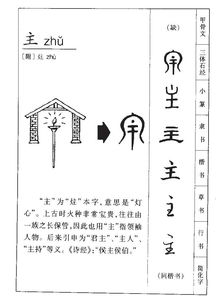 主 zhǔ
(缺)
主
主
主
主
主
“主”为“炷”本字，意思是“灯
心”。上古时火种非常宝贵，往往由
一族之长保管，因此也用“主”指领袖
人物。后来引申为“君主”、“主人”、
“主持”等义。《诗经》：“侯主侯伯。”
(同楷书)
甲骨文
三体石经
小篆
隶书
楷书
草书
行书
简化字